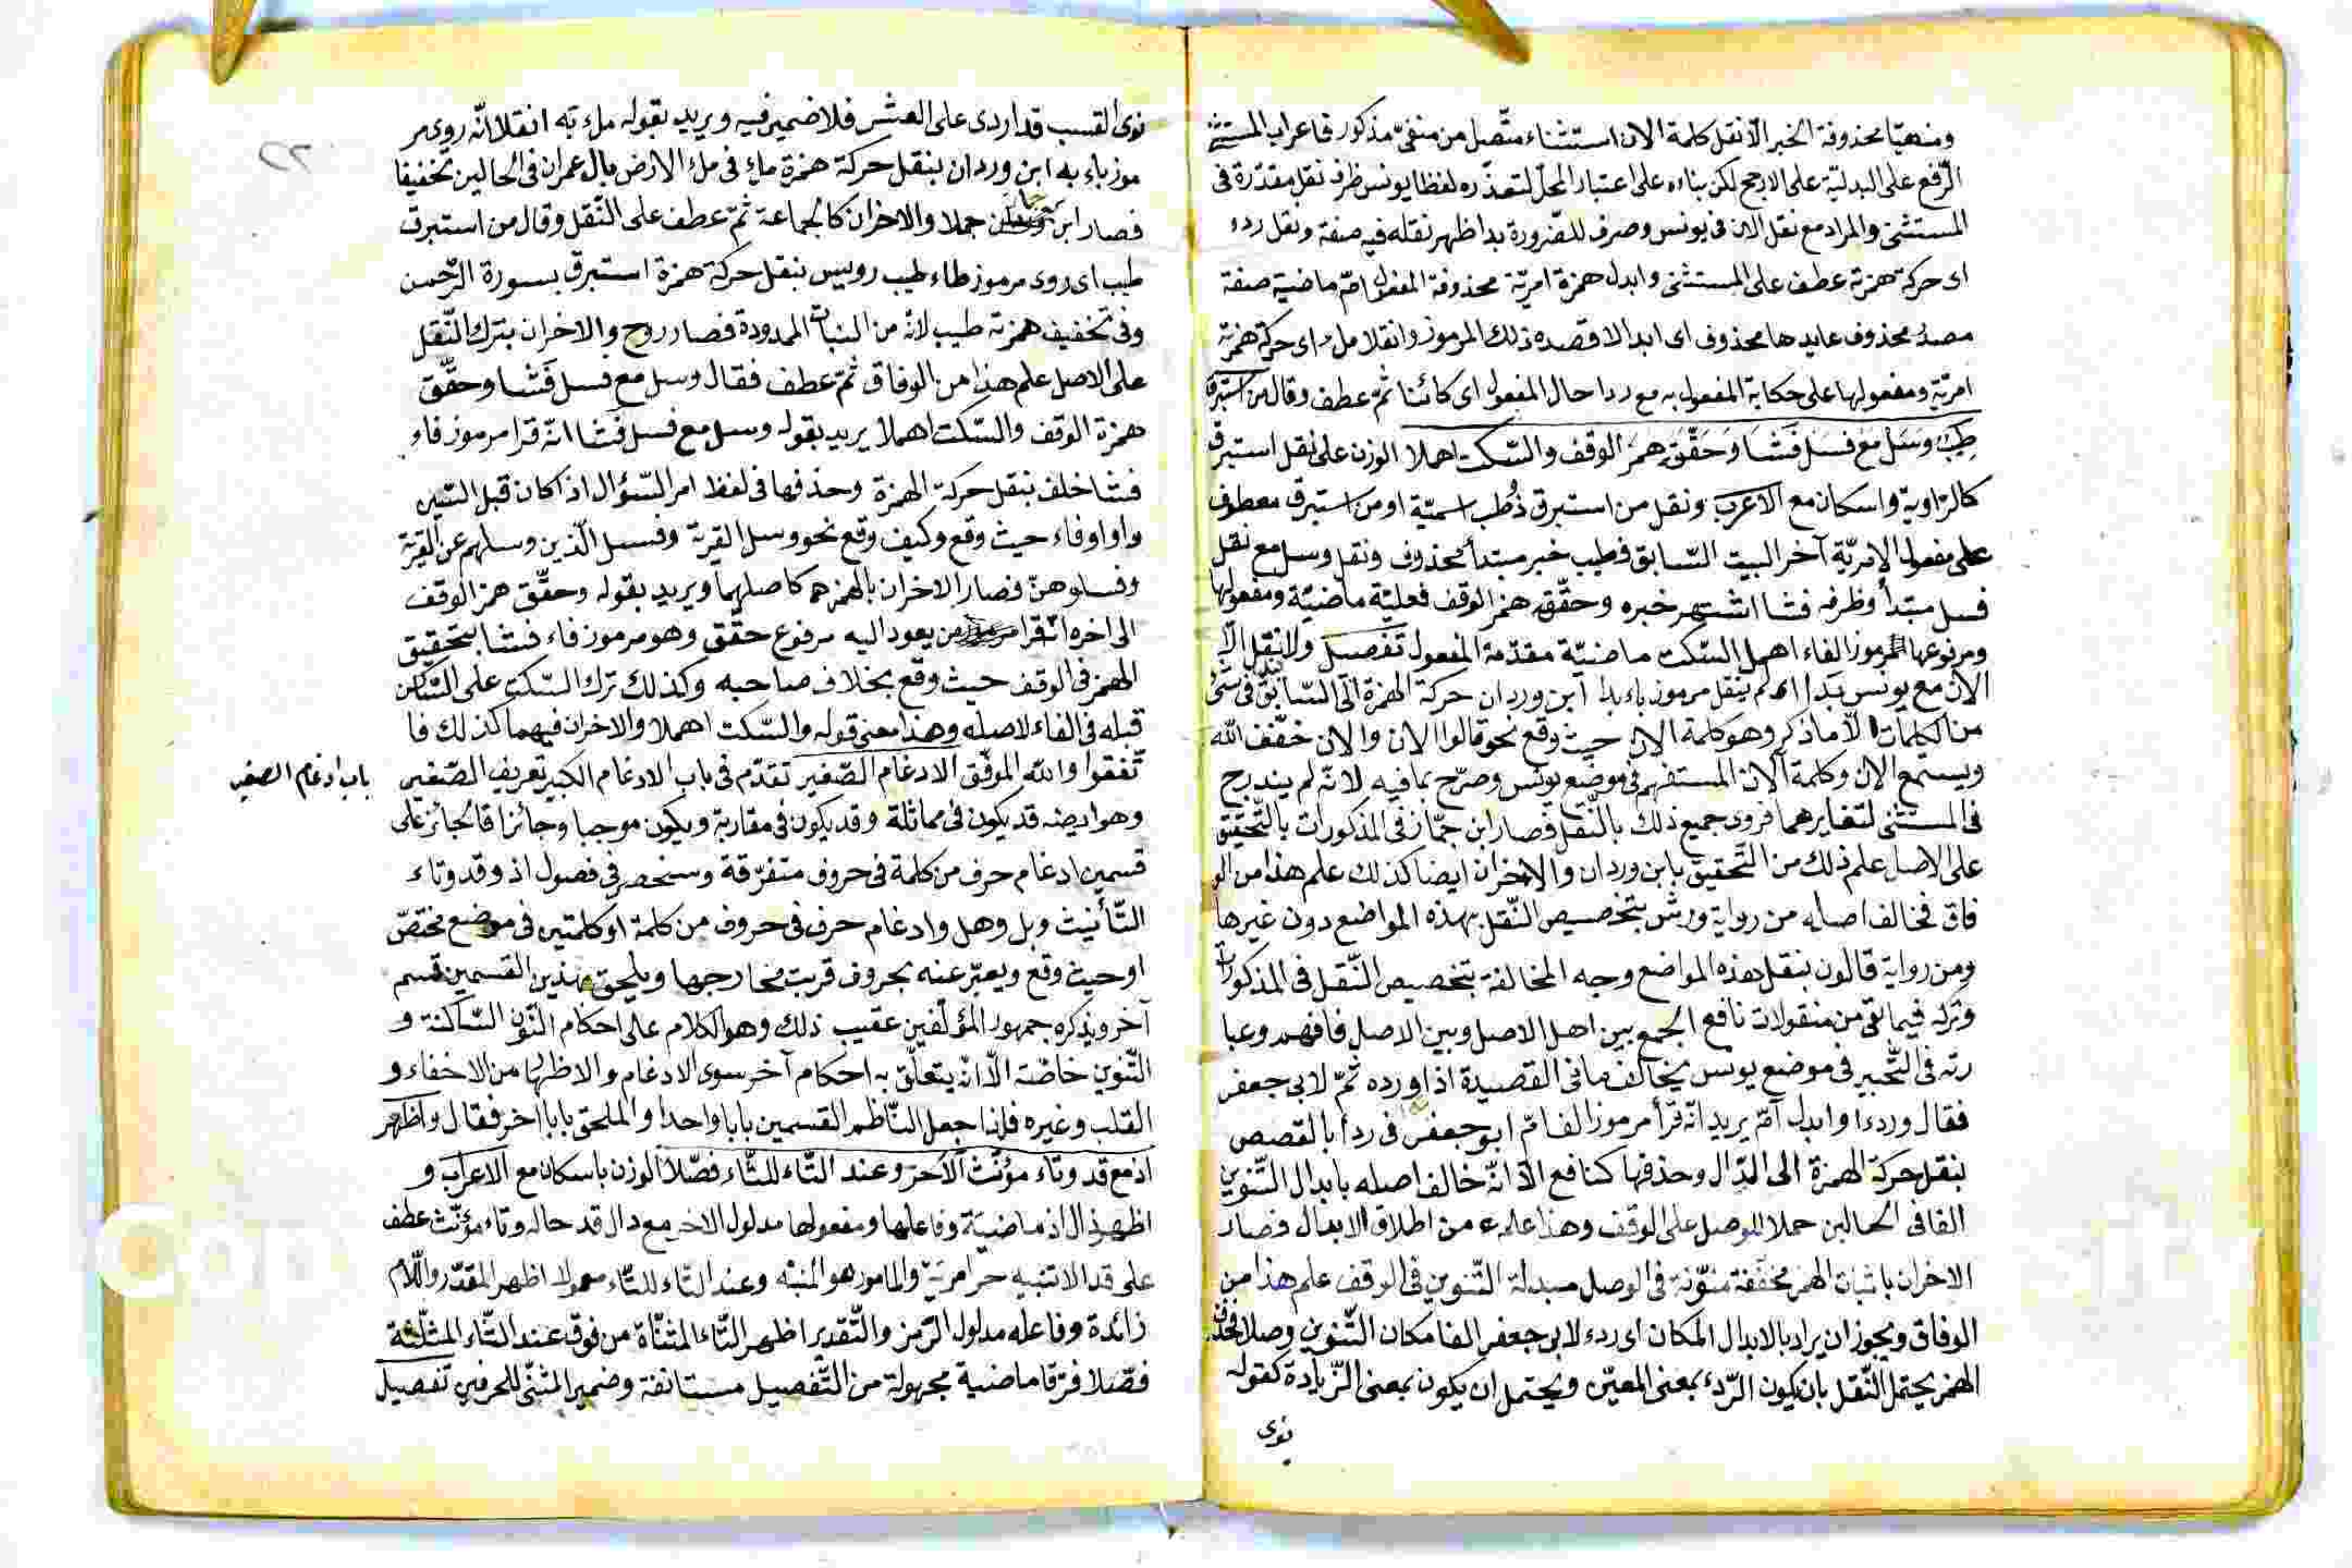 ومنهيّا محذوفة الخبر الّا نقل كلمة الان استثناء متّصل من منفيّ مذكور فاعراب المستثنى
الرّفع على البدليّة على الارجح لكن بناءه على اعتبار المحلّ لتعذّره لفظا يونس ظرف نقل مقدّرة فى
المستثنى والمراد مع نقل الان فى يونس وصرف للضّرورة بدا ظهر نقله فيه صفة ونقل ردء
اى حركة همزته عطف على المستثنى وابدل همزة امريّة محذوفة المفعول امّ ماضية صفة
مصدر محذوف عايدها محذوف اى ابدالا قصده ذلك المرموز وانقلا ملء اى حركة همزته
امريّة ومفعولها على حكاية المفعول به مع ردا حال المفعول اى كائنا ثمّ عطف وقال من استبرق
طِيبٌ وَسَل مَع فَسَل فَشَا وَحَقّقَ همزَ الوقف والسّكت اهملا الوزن على نقل استبرق
كالرّاوية واسكان مع الاعرب ونقل من استبرق ذُطب اسميّة او من استبرق معطوف
على مفعول الامريّة آخر البيت السّابق فطيب خبر مبتدأ محذوف ونقل وسل مع نقل
فسل مبتدأ وظرفه فشا اشتهر خبره وحقّق همز الوقف فعليّة ماضيّة ومفعولها
ومرفوعها المرموز الفاء اهمل السّكت ماضيّة مقدّمة المفعول تفصيل ولا نقل الّا
الان مع يونس بَدا اى لم ينقل مرموز باء بدا ابن وردان حركة الهمزة الى السّابق فى شئ
من الكلمات الّا ما ذكر وهو كلمة الان حيث وقع نحو قالوا الان والان خفّف الله
ويستمع الان وكلمة آلان المستفهم فى موضع يونس وصرّح بما فيه لانّه لم يندرج
فى المستثنى لتغايرهما فروى جميع ذلك بالنّقل فصار ابن جمّاز فى المذكورات بالتّحقيق
على الاصل علم ذلك من التّحقيق بابن وردان والاخران ايضا كذلك علم هذا من الو
فاق فخالف اصله من رواية ورش بتخصيص النّقل بهذه المواضع دون غيرها
ومن رواية قالون بنقل هذه المواضع وجه المخالفة بتخصيص النّقل فى المذكورات
وتركه فيما بقى من منقولات نافع الجمع بين اهل الاصل وبين الاصل فافهم وعبا
رته فى التّحبير فى موضع يونس يخالف ما فى القصيدة اذا ورده ثمّ لابى جعفر
فقال وردءا وابدل امّ يريد انّه قرأ مرموز الف امّ ابو جعفر فى ردأ بالقصص
بنقل حركة الهمزة الى الدّال وحذفها كنافع الّا انّه خالف اصله بابدال التّنوين
الفا فى الحالين حملا للوصل على الوقف وهذا علم من اطلاق الابدال فصار
الاخران باثبات الهمز مخفّفة منوّنة فى الوصل مبدلة التّنوين فى الوقف علم هذا من
الوفاق ويجوز ان يراد بالابدال المكان اى ردء لابى جعفر الفا مكان التّنوين وصلا فحذف
الهمز يحتمل النّقل بان يكون الرّدء بمعنى المعين ويحتمل ان يكون بمعنى الزّيادة كقوله
نوى
نوى القسب قد اردى على العشر فلا ضمير فيه ويريد بقوله ملء به انقلا انّه روى مر
موز باء به ابن وردان بنقل حركة همزة ملء فى ملء الارض بال عمران فى الحالين تخفيفا
فصار ابن جماز حملا والاخران كالجماعة ثمّ عطف على النّقل وقال من استبرق
طيب اى روى مرموز طاء طيب رويس بنقل حركة همزة استبرق بسورة الرّحمن
وفى تخفيف همزته طيب لانّه من الثياب الممدودة فصار روح والاخران بترك النّقل
على الاصل علم هذا من الوفاق ثمّ عطف فقال وسل مع فسل فَشا وحقّق
همزة الوقف والسّكت اهملا يريد بقوله وسل مع فسل فشا انّه قرا مرموز فاء
فشا خلف بنقل حركة الهمزة وحذفها فى لفظ امر السّؤال اذا كان قبل السّين
واو او فاء حيث وقع وكيف وقع نحو وسل القرية وفسل الّذين وسلهم عن القرية
وفسلوهنّ فصار الاخران بالهمز هما كاصلهما ويريد بقوله وحقّق همز الوقف
الى اخره انّه قرا من يعود اليه مرفوع حقّق وهو مرموز فاء فشا بتحقيق
الهمز فى الوقف حيث وقع بخلاف صاحبه وكذلك ترك السّكت على السّاكن
قبله فى الفاء لاصله وهذا معنى قوله والسّكت اهملا والاخران فيهما كذلك فا
تّفقوا والله الموفّق الادغام الصّغير تقدّم فى باب الادغام الكبير تعريف الصّغير
باب ادغام الصغير
وهو ايضه قد يكون فى مماثلة وقد يكون فى مقاربة ويكون موجبا وجائزا فالجائز على
قسمين ادغام حرف من كلمة فى حروف متفرّقة وسنحصر فى فصول اذ وقد وتاء
التّأنيث وبل وهل وادغام حرف فى حروف من كلمة او كلمتين فى موضع مختصّ
او حيث وقع ويعبّر عنه بحروف قربت مخارجها ويلحق بهذين القسمين قسم
آخر ويذكره جمهور المؤلّفين عقيب ذلك وهو الكلام على احكام النّون السّاكنة و
التّنوين خاصّة الّا انّه يتعلّق به احكام آخر سوى الادغام والاظهار من الاخفاء و
القلب وغيره فلذا جعل النّاظم القسمين بابا واحدا والملحق بابا اخر فقال واظهر
اذ مع قد وتاء مؤنّث الاحر وعند الثّاء للتّاء فصّلا الوزن باسكان مع الاعرب و
اظهر ذال اذ ماضيّة وفاعلها ومفعولها مدلول الاخر مع دال قد حاله وتاء مؤنّث عطف
على قد الا تنبيه حر امريّة والمامور هو المنبّه وعند الثّاء للتّاء معمولا اظهر المقدّر واللّام
زائدة وفاعله مدلول الرّمز والتّقدير اظهر التّاء المثنّاة من فوق عند الثّاء المثلّثة
فصّلا فرّقا ماضية مجهولة من التّفصيل مستانفة وضمير المثنّى للحرفين تفصيل